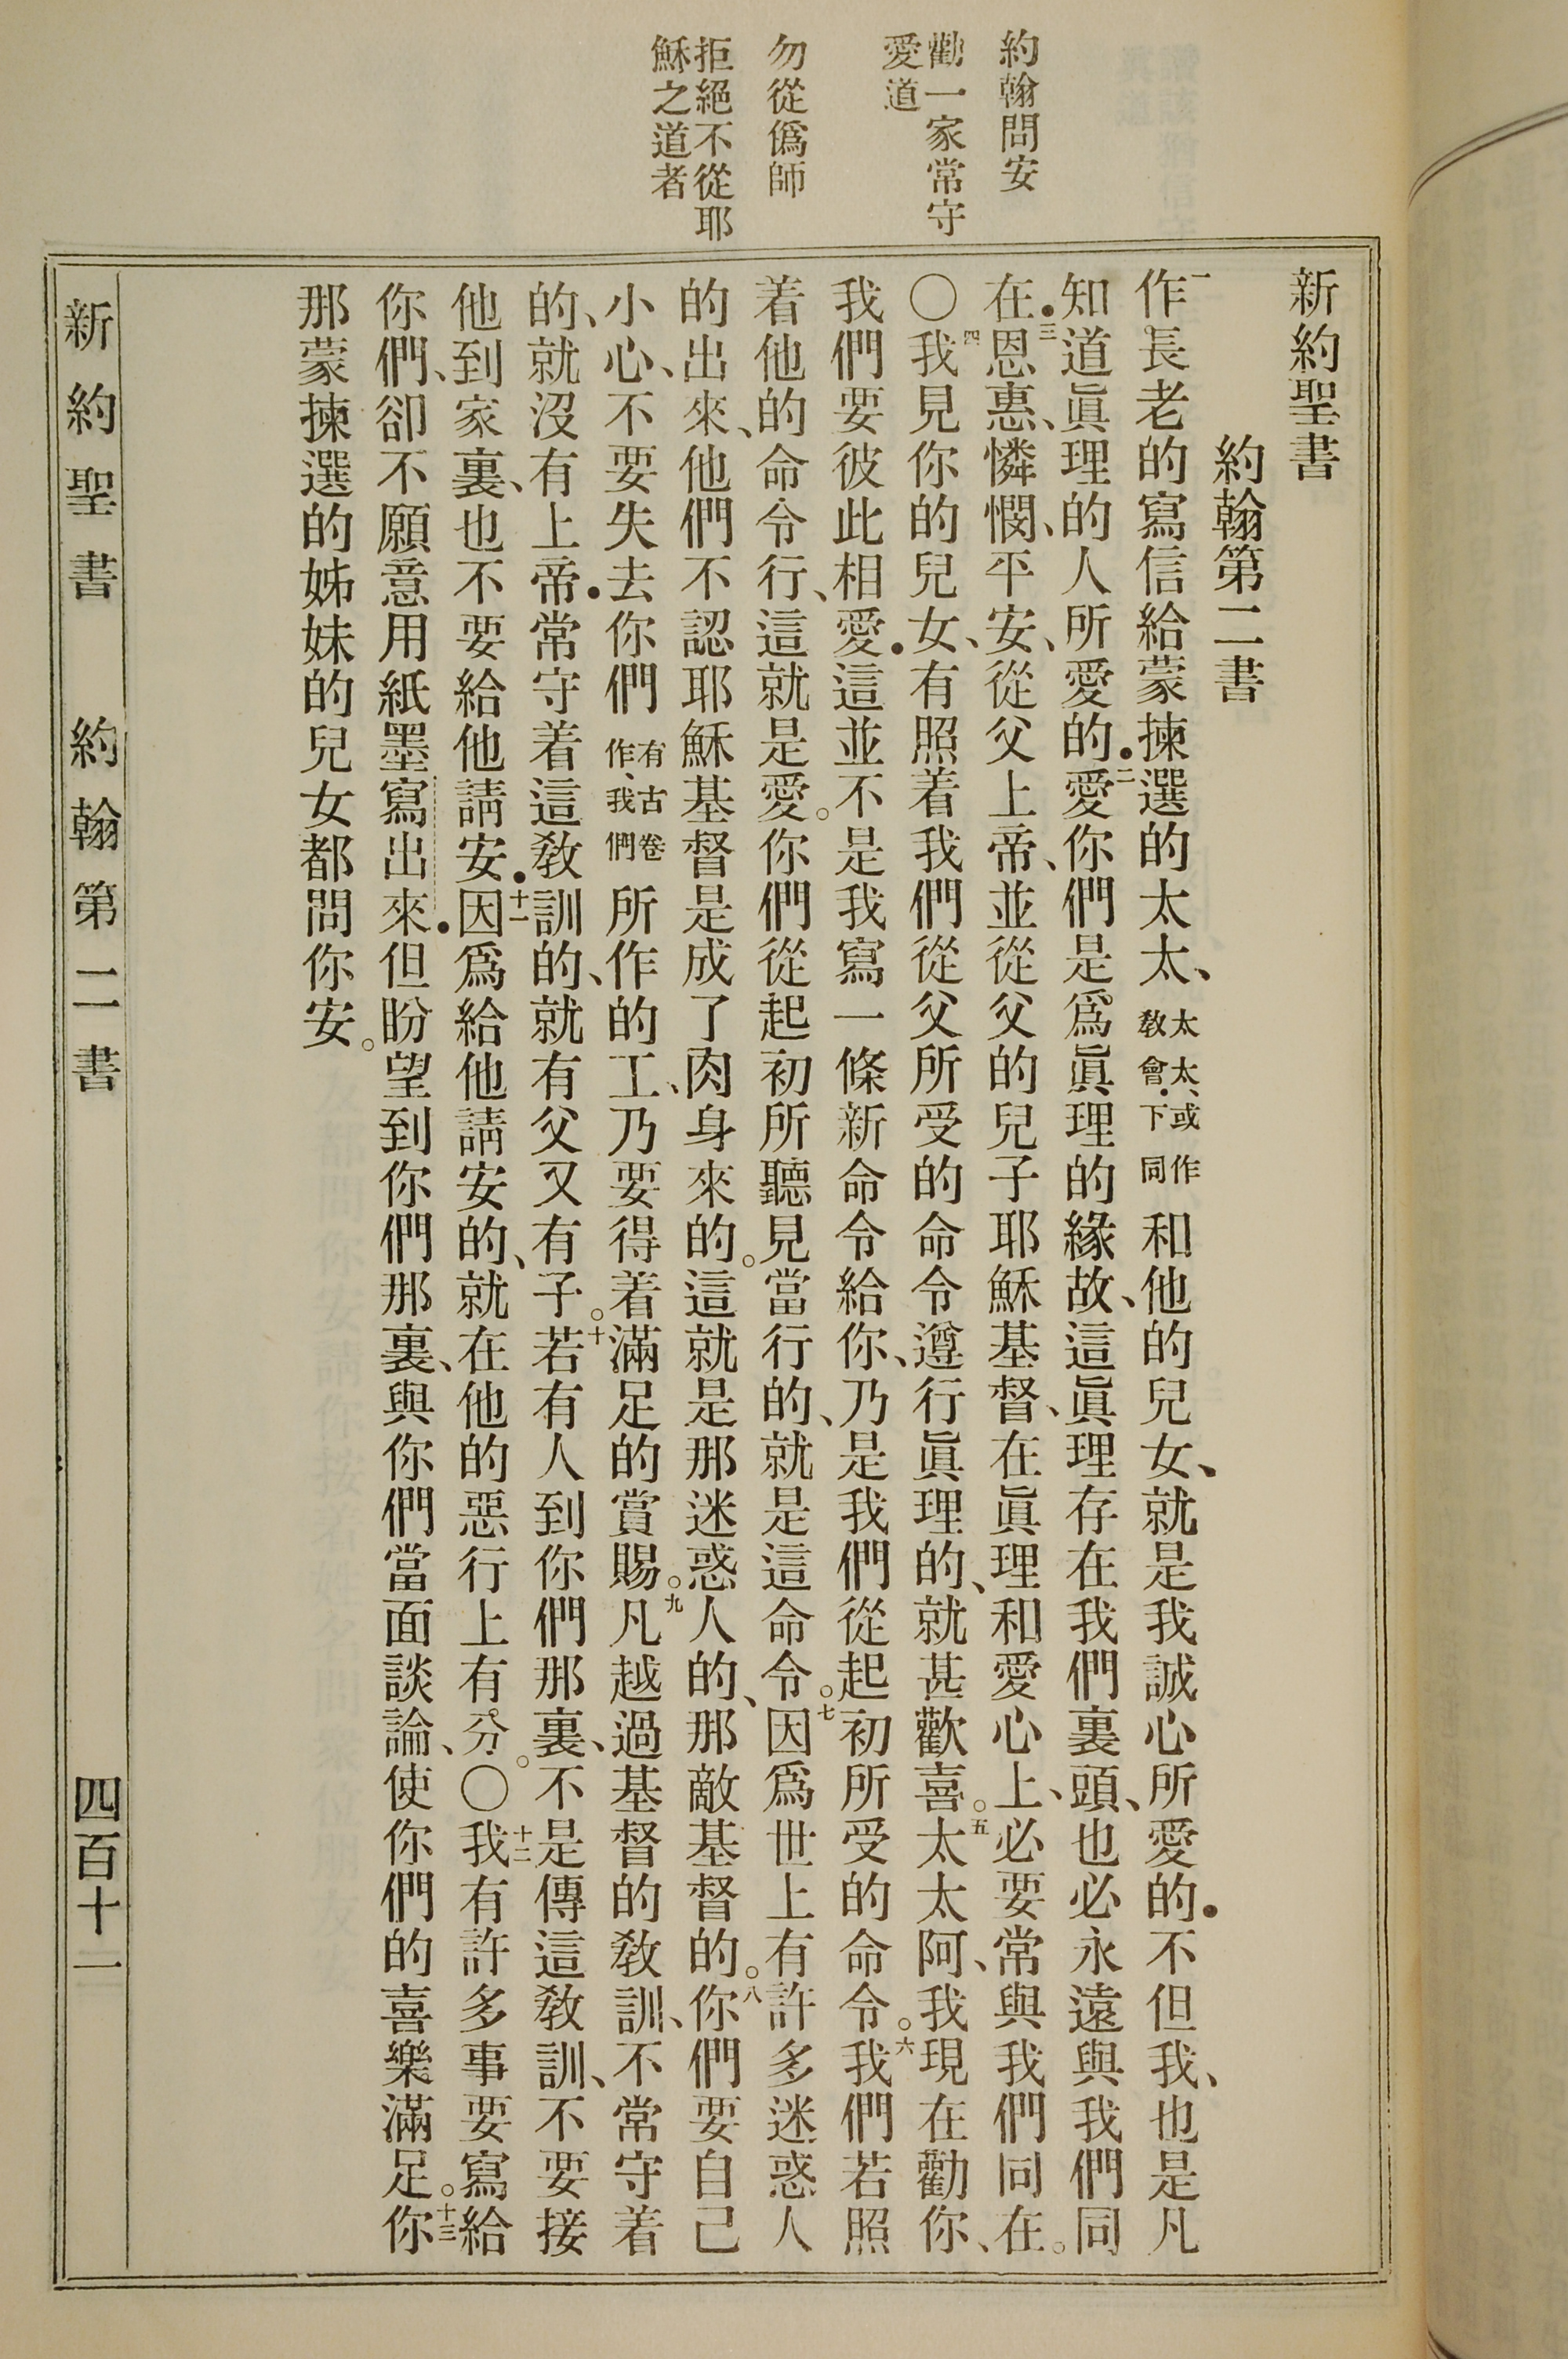 約翰問安
勸一家常守
愛道
勿從僞師
拒絕不從耶
穌之道者
新約聖書
約翰第二書
一作長老的寫信給蒙揀選的太太、太太、或作敎會・下同和他的兒女、就是我誠心所愛的・不但我、也是凡
知道眞理的人所愛的・二愛你們是爲眞理的緣故、這眞理存在我們裏頭、也必永遠與我們同
在・三恩惠、憐憫、平安、從父上帝、並從父的兒子耶穌基督、在眞理和愛心上、必要常與我們同在。
〇四我見你的兒女、有照着我們從父所受的命令遵行眞理的、就甚歡喜。五太太阿、我現在勸你、
我們要彼此相愛・這並不是我寫一條新命令給你、乃是我們從起初所受的命令。六我們若照
着他的命令行、這就是愛。你們從起初所聽見當行的、就是這命令。七因爲世上有許多迷惑人
的出來、他們不認耶穌基督是成了肉身來的。這就是那迷惑人的、那敵基督的。八你們要自己
小心、不要失去你們有古卷作、我們所作的工、乃要得着滿足的賞賜。九凡越過基督的敎訓、不常守着
的、就沒有上帝・常守着這敎訓的、就有父又有子。十若有人到你們那裏、不是傳這敎訓、不要接
他到家裏、也不要給他請安・十一因爲給他請安的、就在他的惡行上有分。〇十二我有許多事要寫給
你們、卻不願意用紙墨寫出來・但盼望到你們那裏、與你們當面談論、使你們的喜樂滿足。十三你
那蒙揀選的姊妹的兒女都問你安。
新約聖書 約翰第二書 四百十一